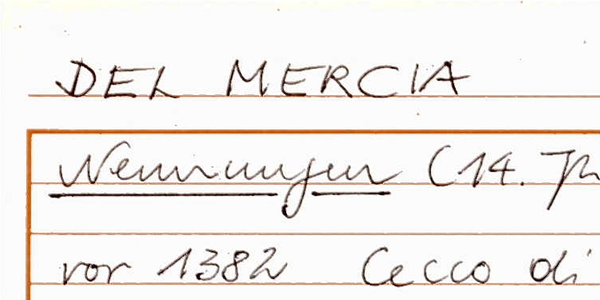 DEL MERCIA
Nennungen (14. Jh
vor 1382 Cecco di